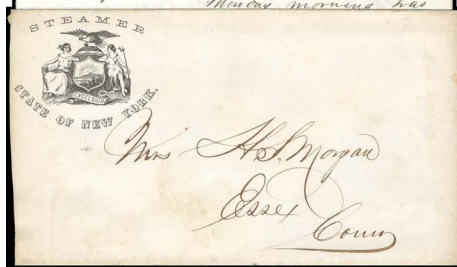 Monday morning has
STEAMER
EXCELSIOR
STATE OF NEW YORK.
Mrs H. S. Morgan
Essex
Conn